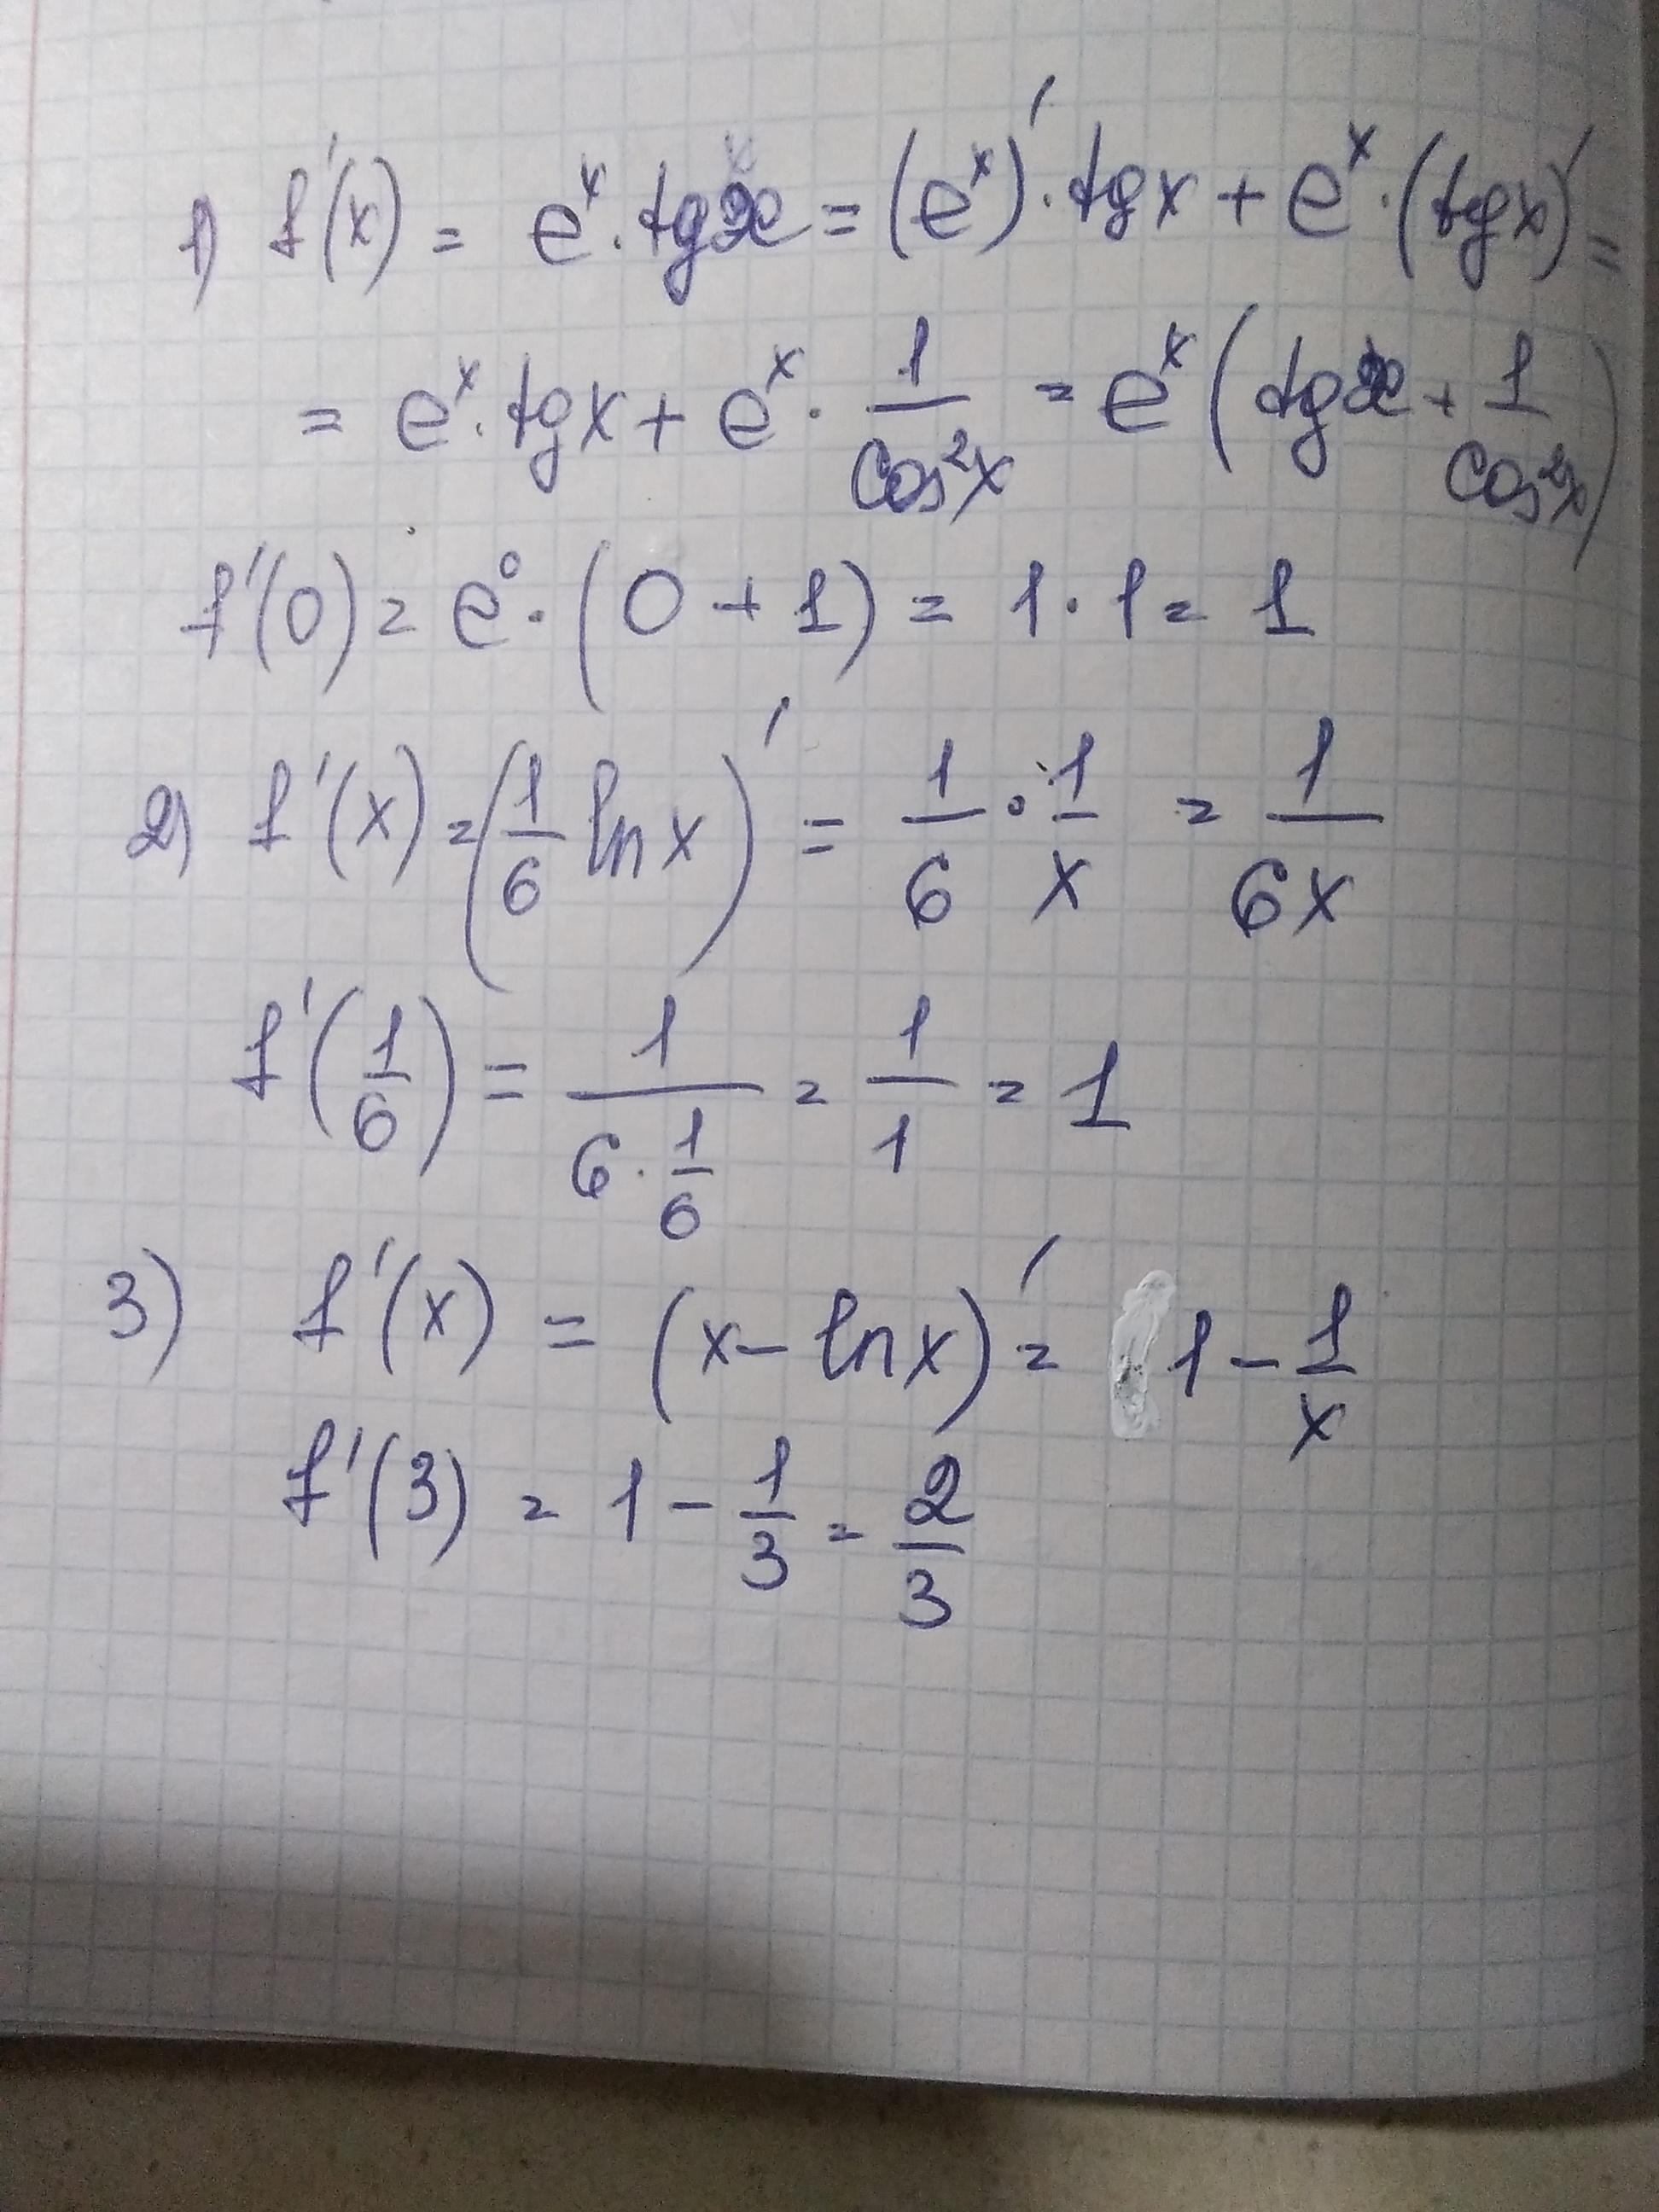 1) f'(x) = eˣ · tgx = (eˣ)' · tgx + eˣ · (tgx)' =
= eˣ · tgx + eˣ · 1/cos²x = eˣ (tgx + 1/cos²x)
f'(0) = e⁰ · (0 + 1) = 1 · 1 = 1
2) f'(x) = (1/6 lnx)' = 1/6 · 1/x = 1/6x
f'(1/6) = 1/(6 · 1/6) = 1/1 = 1
3) f'(x) = (x - lnx)' = 1 - 1/x
f'(3) = 1 - 1/3 = 2/3